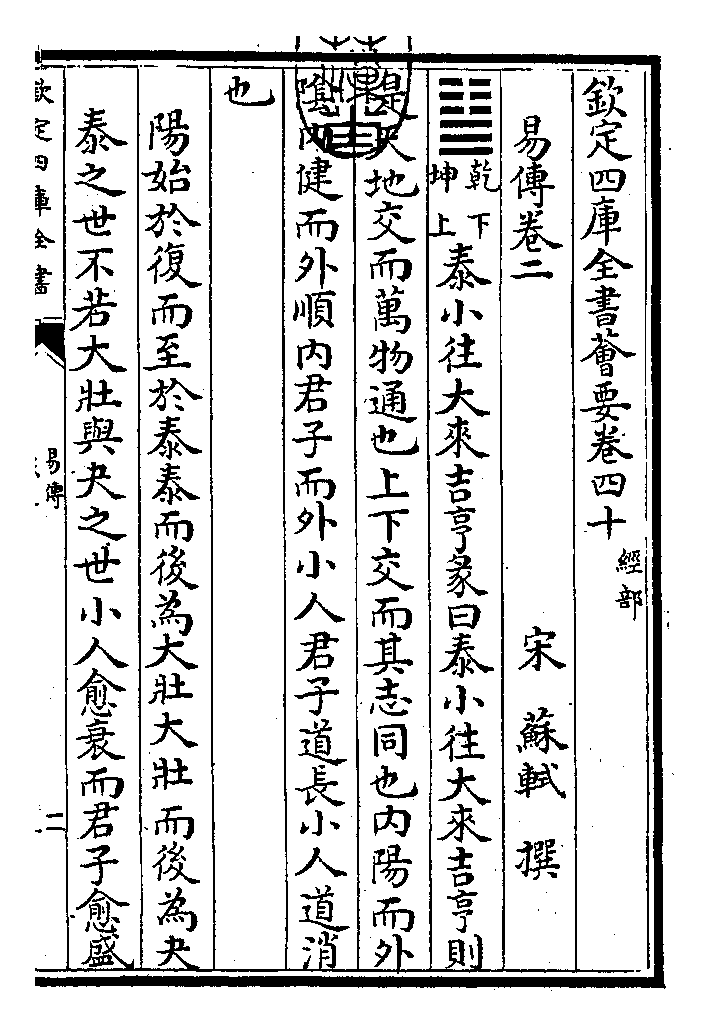 欽定四庫全書薈要卷四十 經部
易傳卷二 宋 蘇軾 撰
䷊ 乾下坤上 泰小往大來吉亨彖曰泰小往大來吉亨則
是天地交而萬物通也上下交而其志同也内陽而外
陰内健而外順内君子而外小人君子道長小人道消
也
陽始於復而至於泰泰而後為大壯大壯而後為夬
泰之世不若大壯與夬之世小人愈衰而君子愈盛
欽定四庫全書
易傳
二